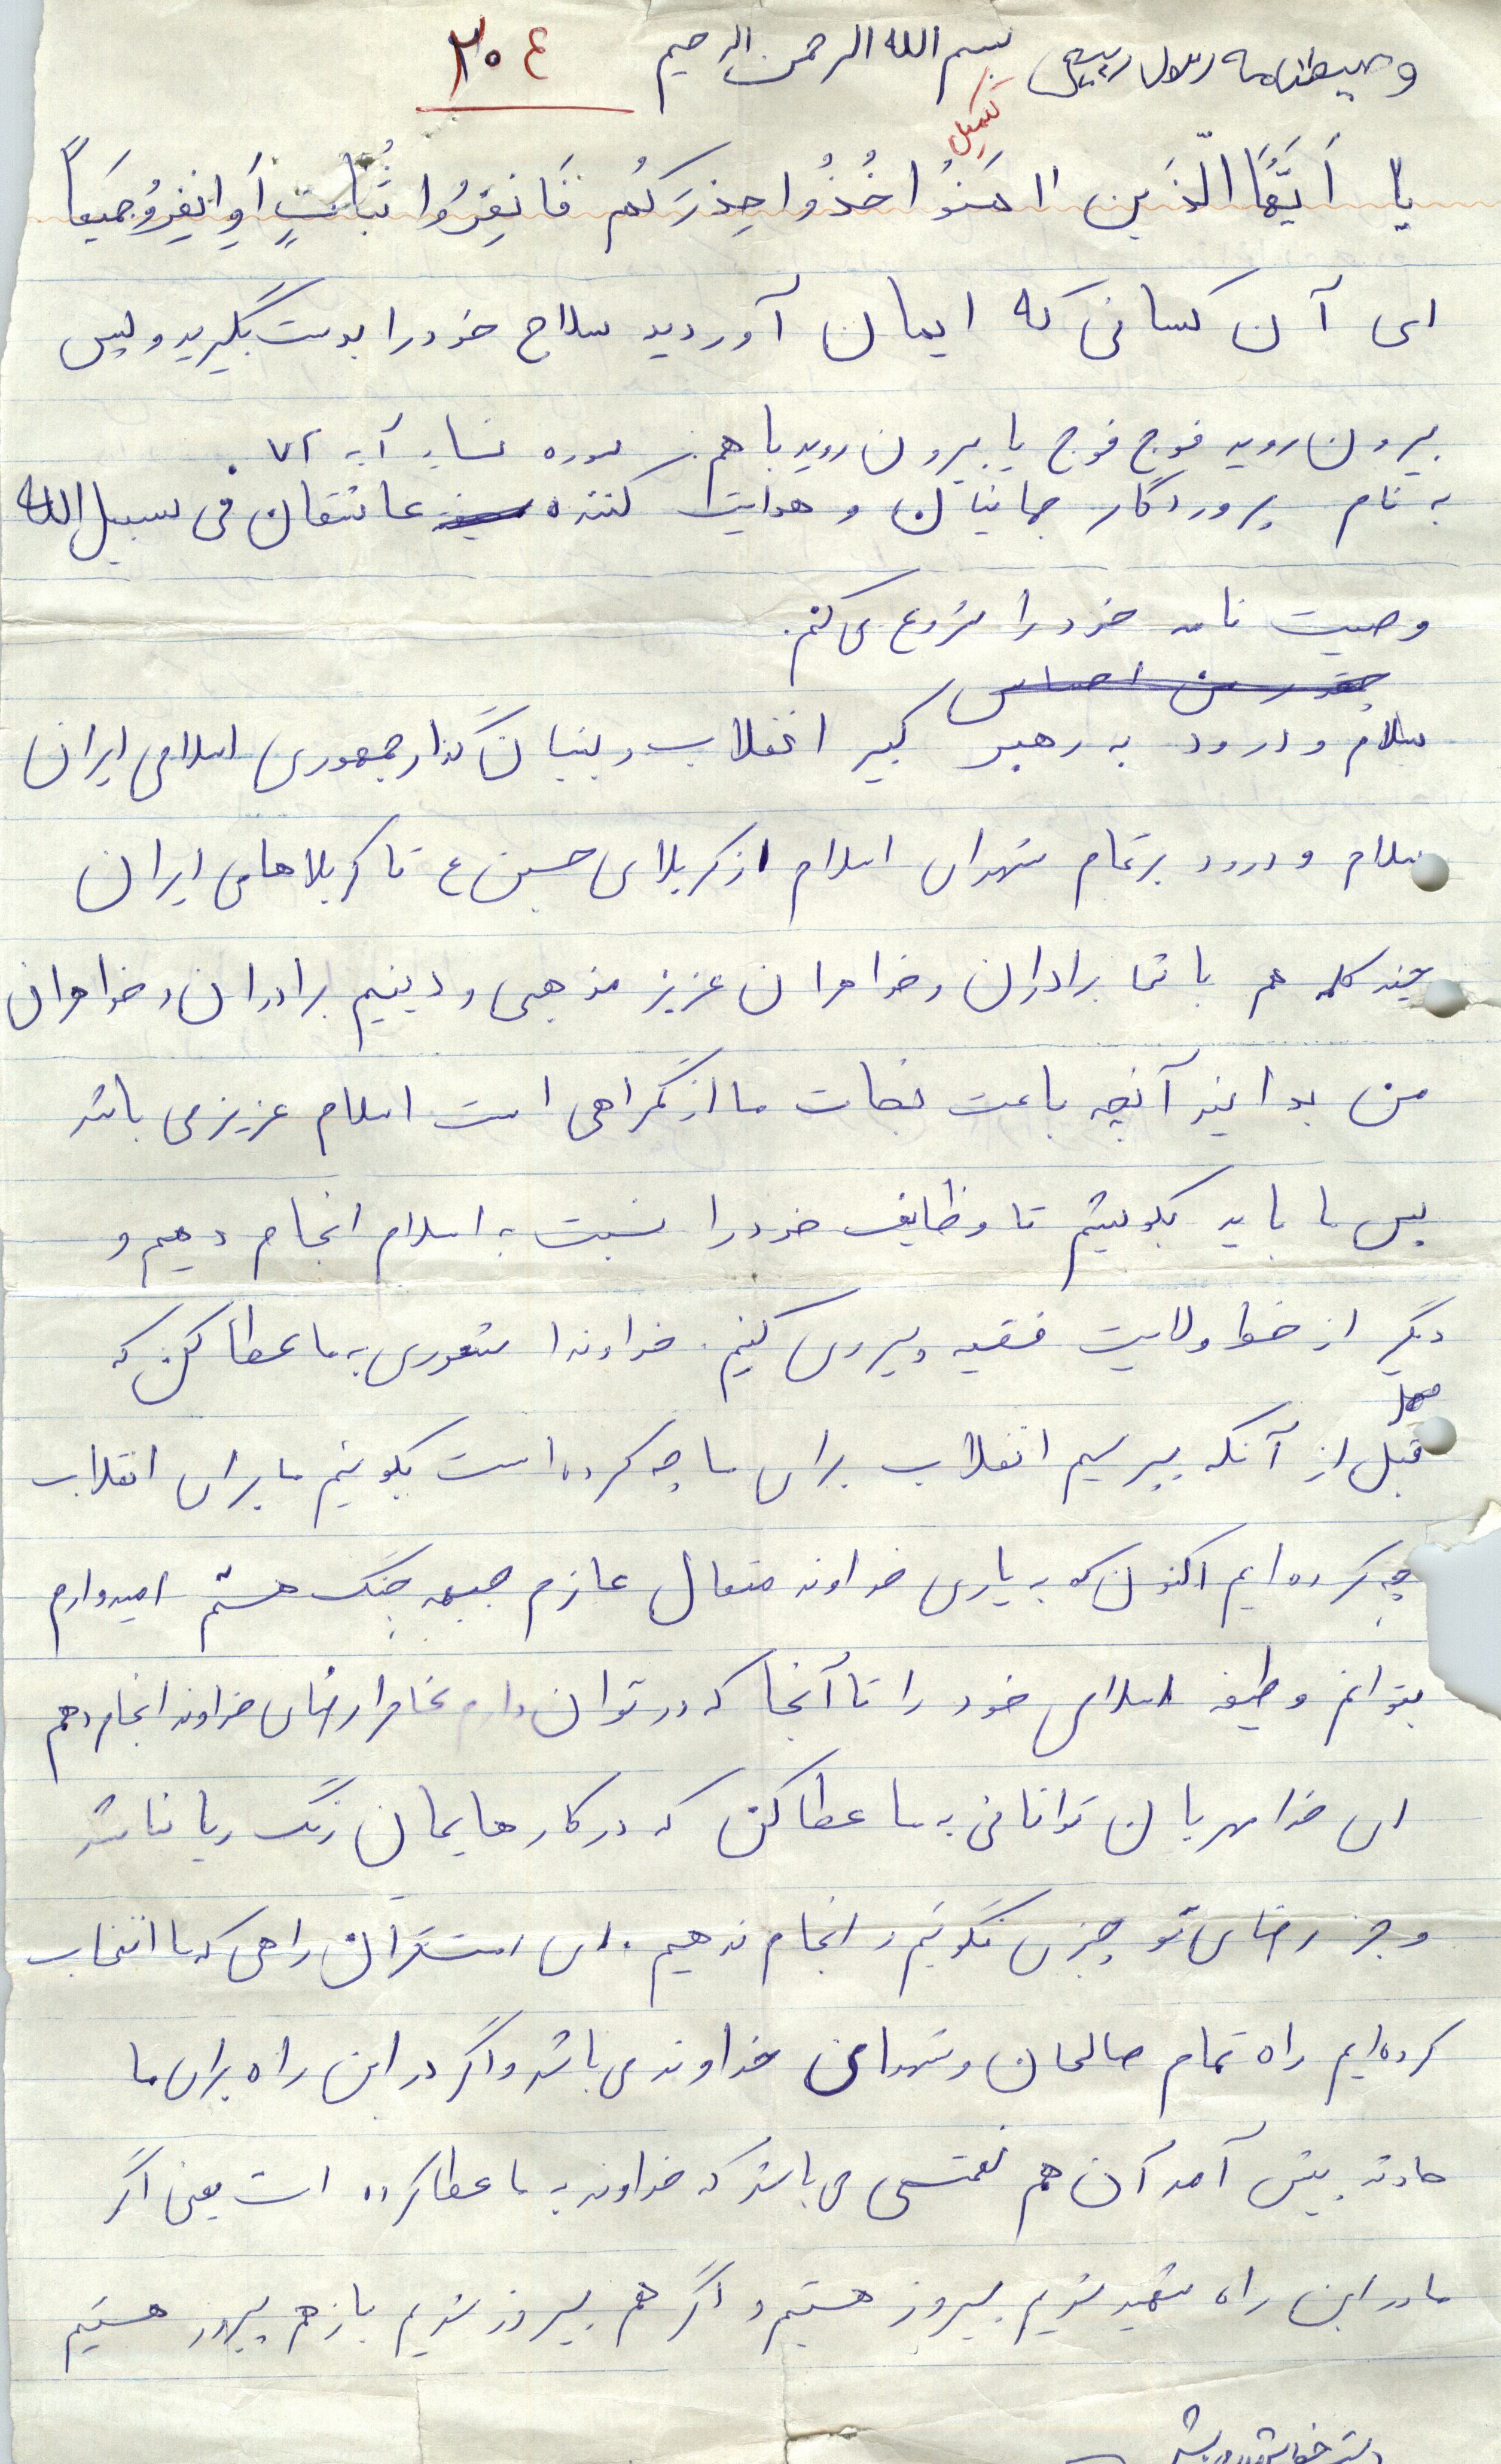 وصیتنامه رسول ربیعی بسم الله الرحمن الرحیم ۳۰۴
تکمیل
یا اَیُّهَا الَّذین امَنوُا خُذُوا حِذرَکُم فَانفِرُوا ثُباتٍ اَوِانفِروُجَمیَعاً
ای آن کسانی که ایمان آوردید سلاح خود را بدست بگیرید و پس
بیرون روید فوج فوج یا بیرون روید با هم. سوره نساء آیه ۷۲.
به نام پروردگار جهانیان و هدایت کننده عاشقان فی سبیل الله
وصیت نامه خود را شروع می کنم.
چقدر من احساس
سلام و درود به رهبر کبیر انقلاب و بنیان گذار جمهوری اسلامی ایران
سلام و درود بر تمام شهدای اسلام از کربلای حسین ع تا کربلاهای ایران
چند کلمه هم با شما برادران و خواهران عزیز مذهبی و دینیم برادران و خواهران
من بدانید آنچه باعث نجات ما از گمراهی است اسلام عزیز می باشد
پس ما باید بکوشیم تا وظایف خود را نسبت به اسلام انجام دهیم و
دیگر از خط ولایت فقیه پیروی کنیم. خداوندا شعوری به ما عطا کن که
قبل از آنکه بپرسیم انقلاب برای ما چه کرده است بگوئیم ما برای انقلاب
چه کرده ایم اکنون که به یاری خداوند متعال عازم جبهه جنگ هستم امیدوارم
بتوانم وظیفه اسلامی خود را تا آنجا که در توان دارم بخاطر رضای خداوند انجام دهم
ای خدا مهربان توانائی به ما عطا کن که در کارهایمان رنگ ریا نباشد
و جز رضای تو چیزی نگوئیم و انجام ندهیم. ای راهی که ما انتخاب
کرده ایم راه تمام صالحان و شهدای خداوند می باشد و اگر در این راه برای ما
حادثه پیش آمد آن هم نعمتی می باشد که خداوند به ما عطا کرده است یعنی اگر
ما در این راه شهید شویم پیروز هستیم و اگر هم پیروز شویم باز هم پیروز هستیم